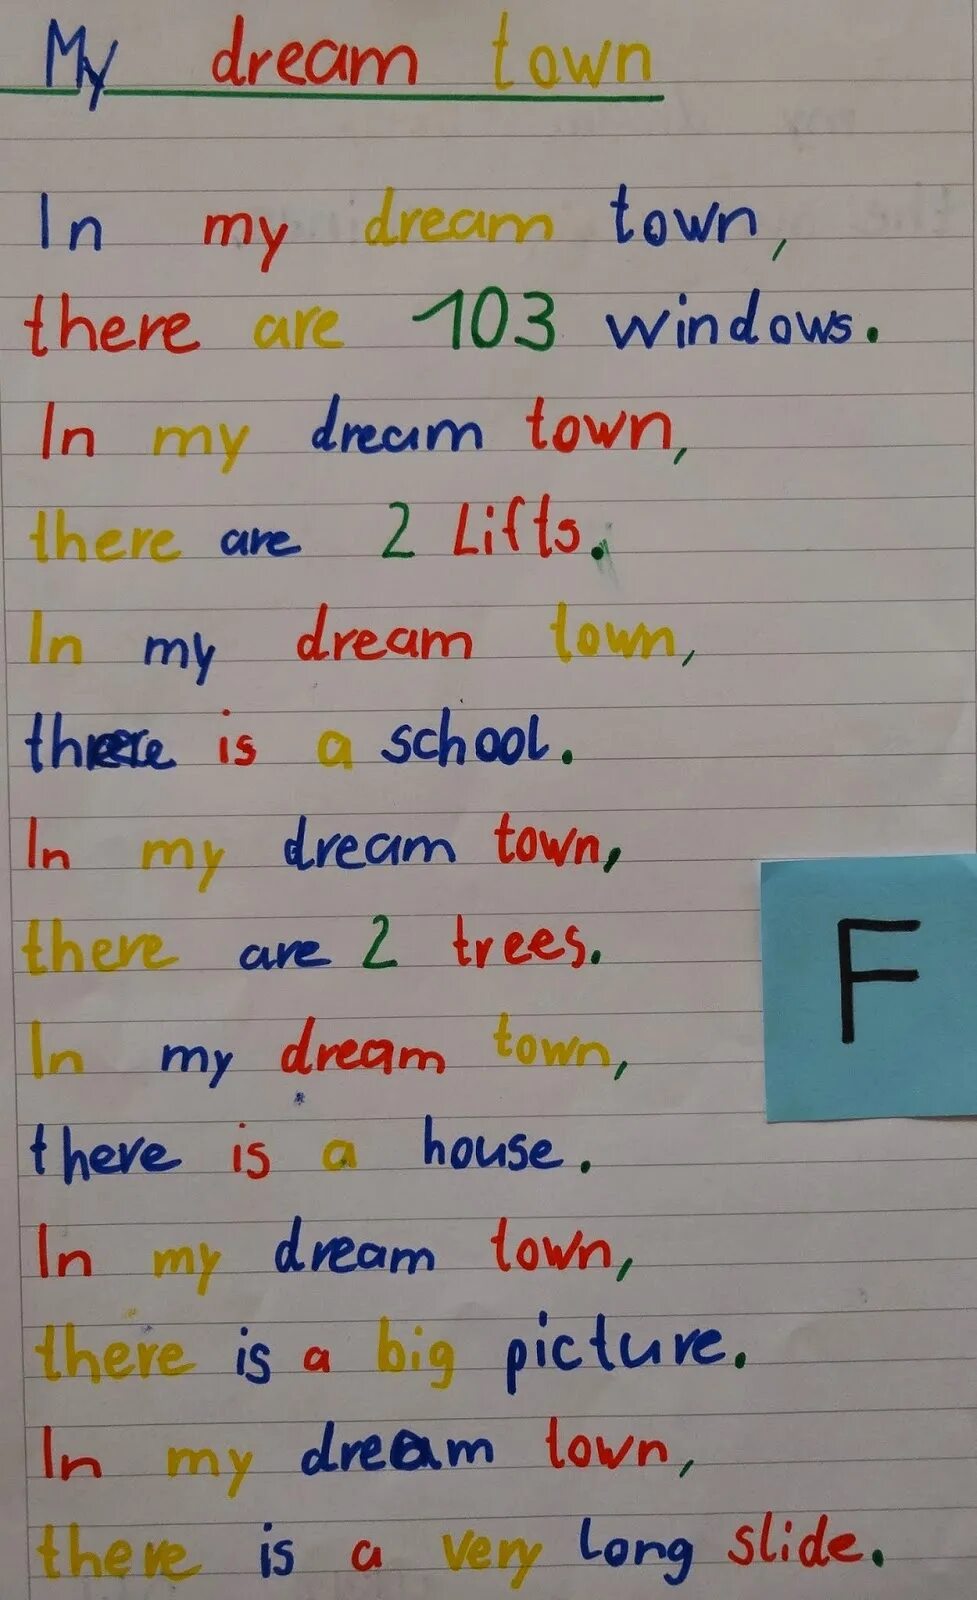 My dream town
In my dream town,
there are 103 windows.
In my dream town,
there are 2 Lifts.
In my dream town,
there is a school.
In my dream town,
there are 2 trees.
F
In my dream town,
there is a house.
In my dream town,
there is a big picture.
In my dream town,
there is a very long slide.